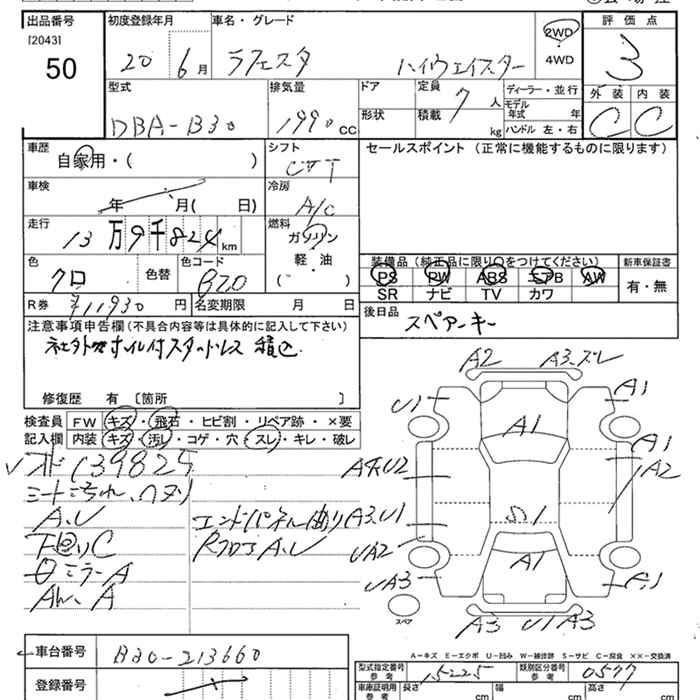 出品番号 初度登録年月 車名・グレード 評価点
[2043]
50 20 6月 ラフェスタ ハイウェイスター 2WD 3
4WD
型式 排気量 ドア 定員 7人 ディーラー・並行 外装 内装
形状 積載 kg モデル年式 年
DBA-B30 1990cc ハンドル 左・右 C C
車歴 シフト セールスポイント(正常に機能するものに限ります)
自家用・( ) CVT
車検 冷房
年 月( 日) A/C
走行 燃料
13万9千824km ガソリン
軽・油
( )
装備品(純正品に限り○をつけてください) 新車保証書
色 色替 色コード PS PW ABS エアB AW 有・無
クロ B20 SR ナビ TV カワ
R券 ¥11930円 名変期限 月 日 後日品
スペアーキー
注意事項申告欄(不具合内容等は具体的に記入して下さい)
社外ホイル付スタッドレス積込
修復歴 有〔箇所 〕
検査員記入欄 FW キズ・飛石・ヒビ割・リペア跡・×要
内装 キズ・汚れ・コゲ・穴・スレ・キレ・破レ
139825
シート汚れ、ヘタリ
A、U エンドパネル曲り
下回りC RフロアA、U
ミラーA
A
A2 A3、スレ
U1 A1
A1 A1
A2
S1
A3、U1
UA2
A1
UA3 A1
スペア
A3 U1 A3
A-キズ E-エクボ U-凹み W-補修跡 S-サビ C-腐食 ××-交換済
車台番号 B30-213660
型式指定番号 参考 15225 類別区分番号 参考 0577
登録番号 車庫証明用 参考 長さ cm 幅 cm 高さ cm